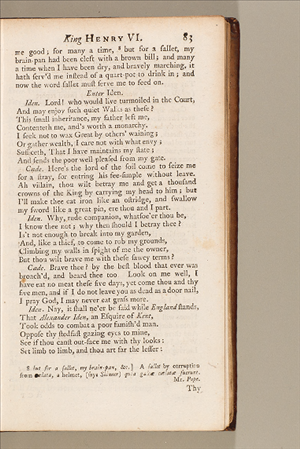 King HENRY VI. 83
me good; for many a time, § but for a sallet, my
brain-pan had been cleft with a brown bill; and many
a time when I have been dry, and bravely marching, it
hath serv'd me instead of a quart-pot to drink in; and
now the word sallet must serve me to feed on.
Enter Iden.
Iden. Lord! who would live turmoiled in the Court,
And may enjoy such quiet Walks as these?
This small inheritance, my father left me,
Contenteth me, and's worth a monarchy.
I seek not to wax Great by others' waining;
Or gather wealth, I care not with what envy;
Sufficeth, That I have maintains my state;
And sends the poor well pleased from my gate.
Cade. Here's the lord of the soil come to seize me
for a stray, for entring his fee-simple without leave.
Ah villain, thou wilt betray me and get a thousand
crowns of the King by carrying my head to him; but
I'll make thee eat iron like an ostridge, and swallow
my sword like a great pin, ere thou and I part.
Iden. Why, rude companion, whatsoe'er thou be,
I know thee not; why then should I betray thee?
Is't not enough to break into my garden,
And, like a thief, to come to rob my grounds,
Climbing my walls in spight of me the owner,
But thou wilt brave me with these sawcy terms?
Cade. Brave thee? by the best blood that ever was
broach'd, and beard thee too Look on me well, I
have eat no meat these five days, yet come thou and thy
five men, and if I do not leave you as dead as a door nail,
I pray God, I may never eat grass more.
Iden. Nay, it shall ne'er be said while England stands,
That Alexander Iden, an Esquire of Kent,
Took odds to combat a poor famish'd man.
Oppose thy stedfast gazing eyes to mine,
See if thou canst out-face me with thy looks:
Set limb to limb, and thou art far the lesser:
§ but for a sallet, my brain-pan, &c.] A sallet by corruption
from cælata, a helmet, (says Skinner) quia galeæ cælatæ fuerunt.
Mr. Pope.
Thy